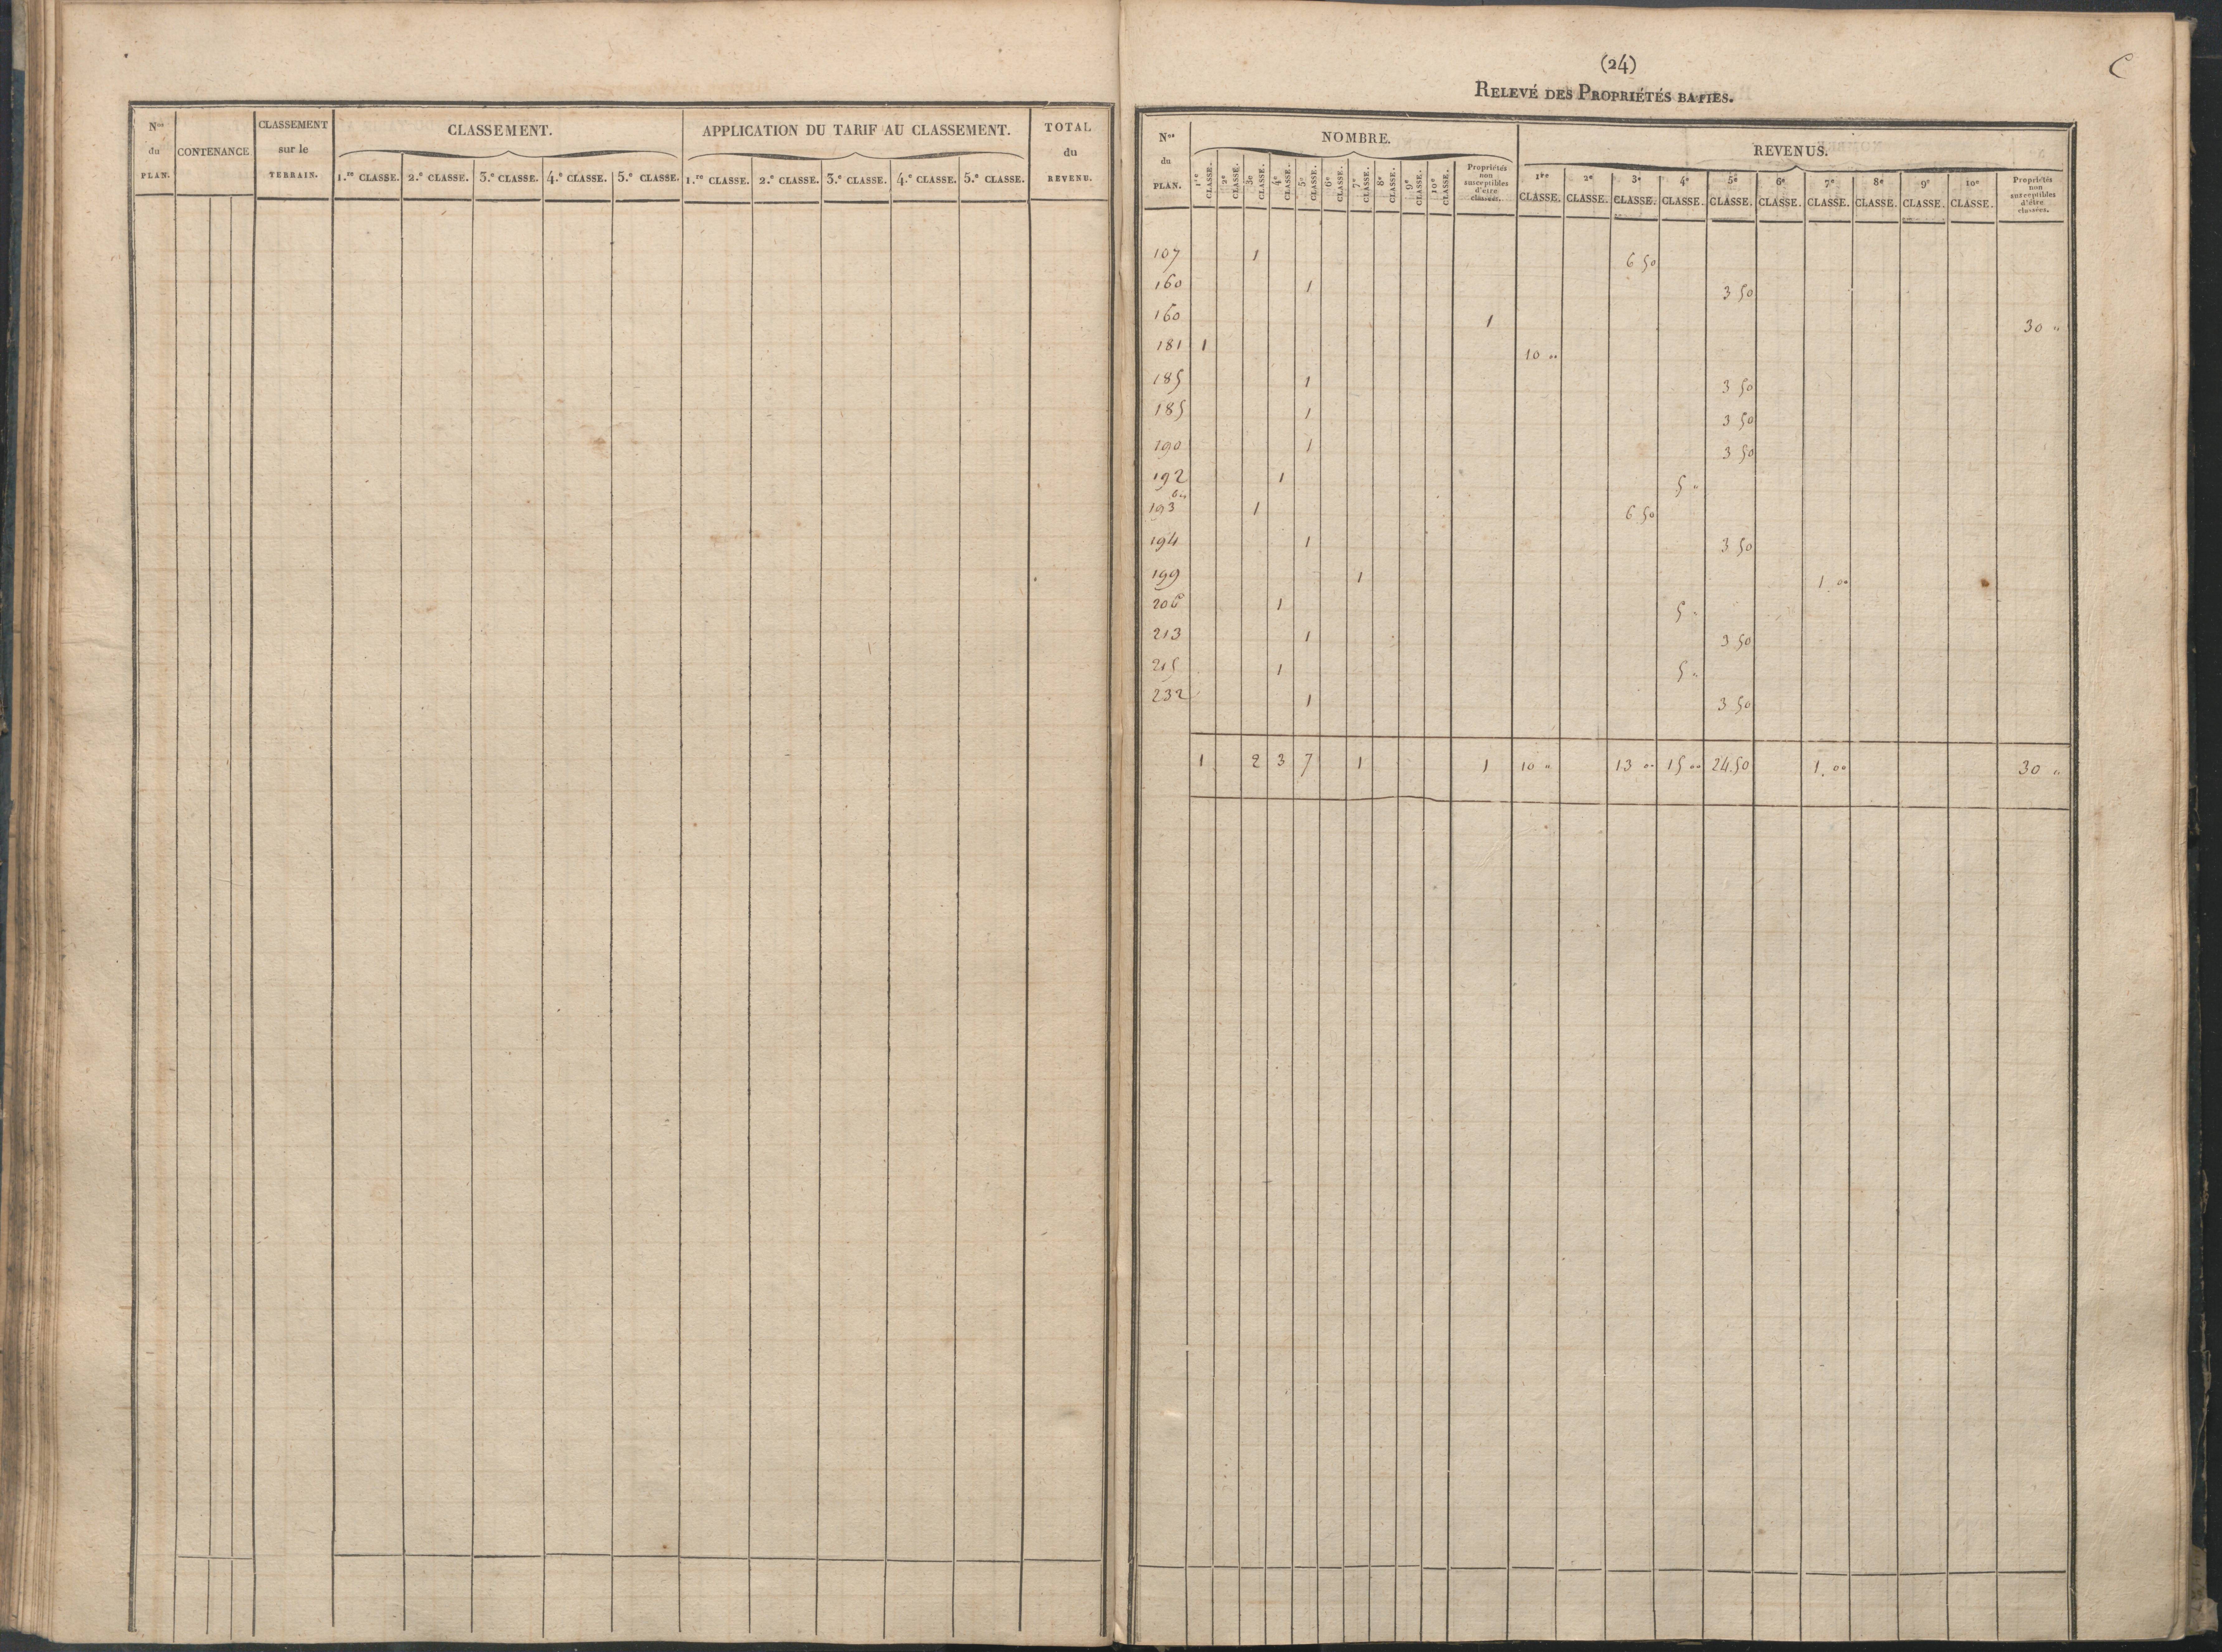 Nos du PLAN. CONTENANCE CLASSEMENT sur le TERRAIN. CLASSEMENT. APPLICATION DU TARIF AU CLASSEMENT. TOTAL du REVENU.
1.re CLASSE. 2.e CLASSE. 3.e CLASSE. 4.e CLASSE. 5.e CLASSE. 1.re CLASSE. 2.e CLASSE. 3.e CLASSE. 4.e CLASSE. 5.e CLASSE.
(24)
C
RELEVÉ DES PROPRIÉTÉS BATIES.
Nos du PLAN. NOMBRE. REVENUS.
1re CLASSE. 2e CLASSE. 3e CLASSE. 4e CLASSE. 5e CLASSE. 6e CLASSE. 7e CLASSE. 8e CLASSE. 9e CLASSE. 10e CLASSE. Propriétés non susceptibles d'être classées. 1re CLASSE. 2e CLASSE. 3e CLASSE. 4e CLASSE. 5e CLASSE. 6e CLASSE. 7e CLASSE. 8e CLASSE. 9e CLASSE. 10e CLASSE. Propriétés non susceptibles d'être classées.
107 1 6 50
160 1 3 50
160 1 30 "
181 1 10 "
185 1 3 50
185 1 3 50
190 1 3 50
192 1 5 "
193 bis 1 6 50
194 1 3 50
199 1 1 00
206 1 5 "
213 1 3 50
215 1 5 "
232 1 3 50
1 2 3 7 1 1 10 " 13 00 15 00 24.50 1.00 30 "